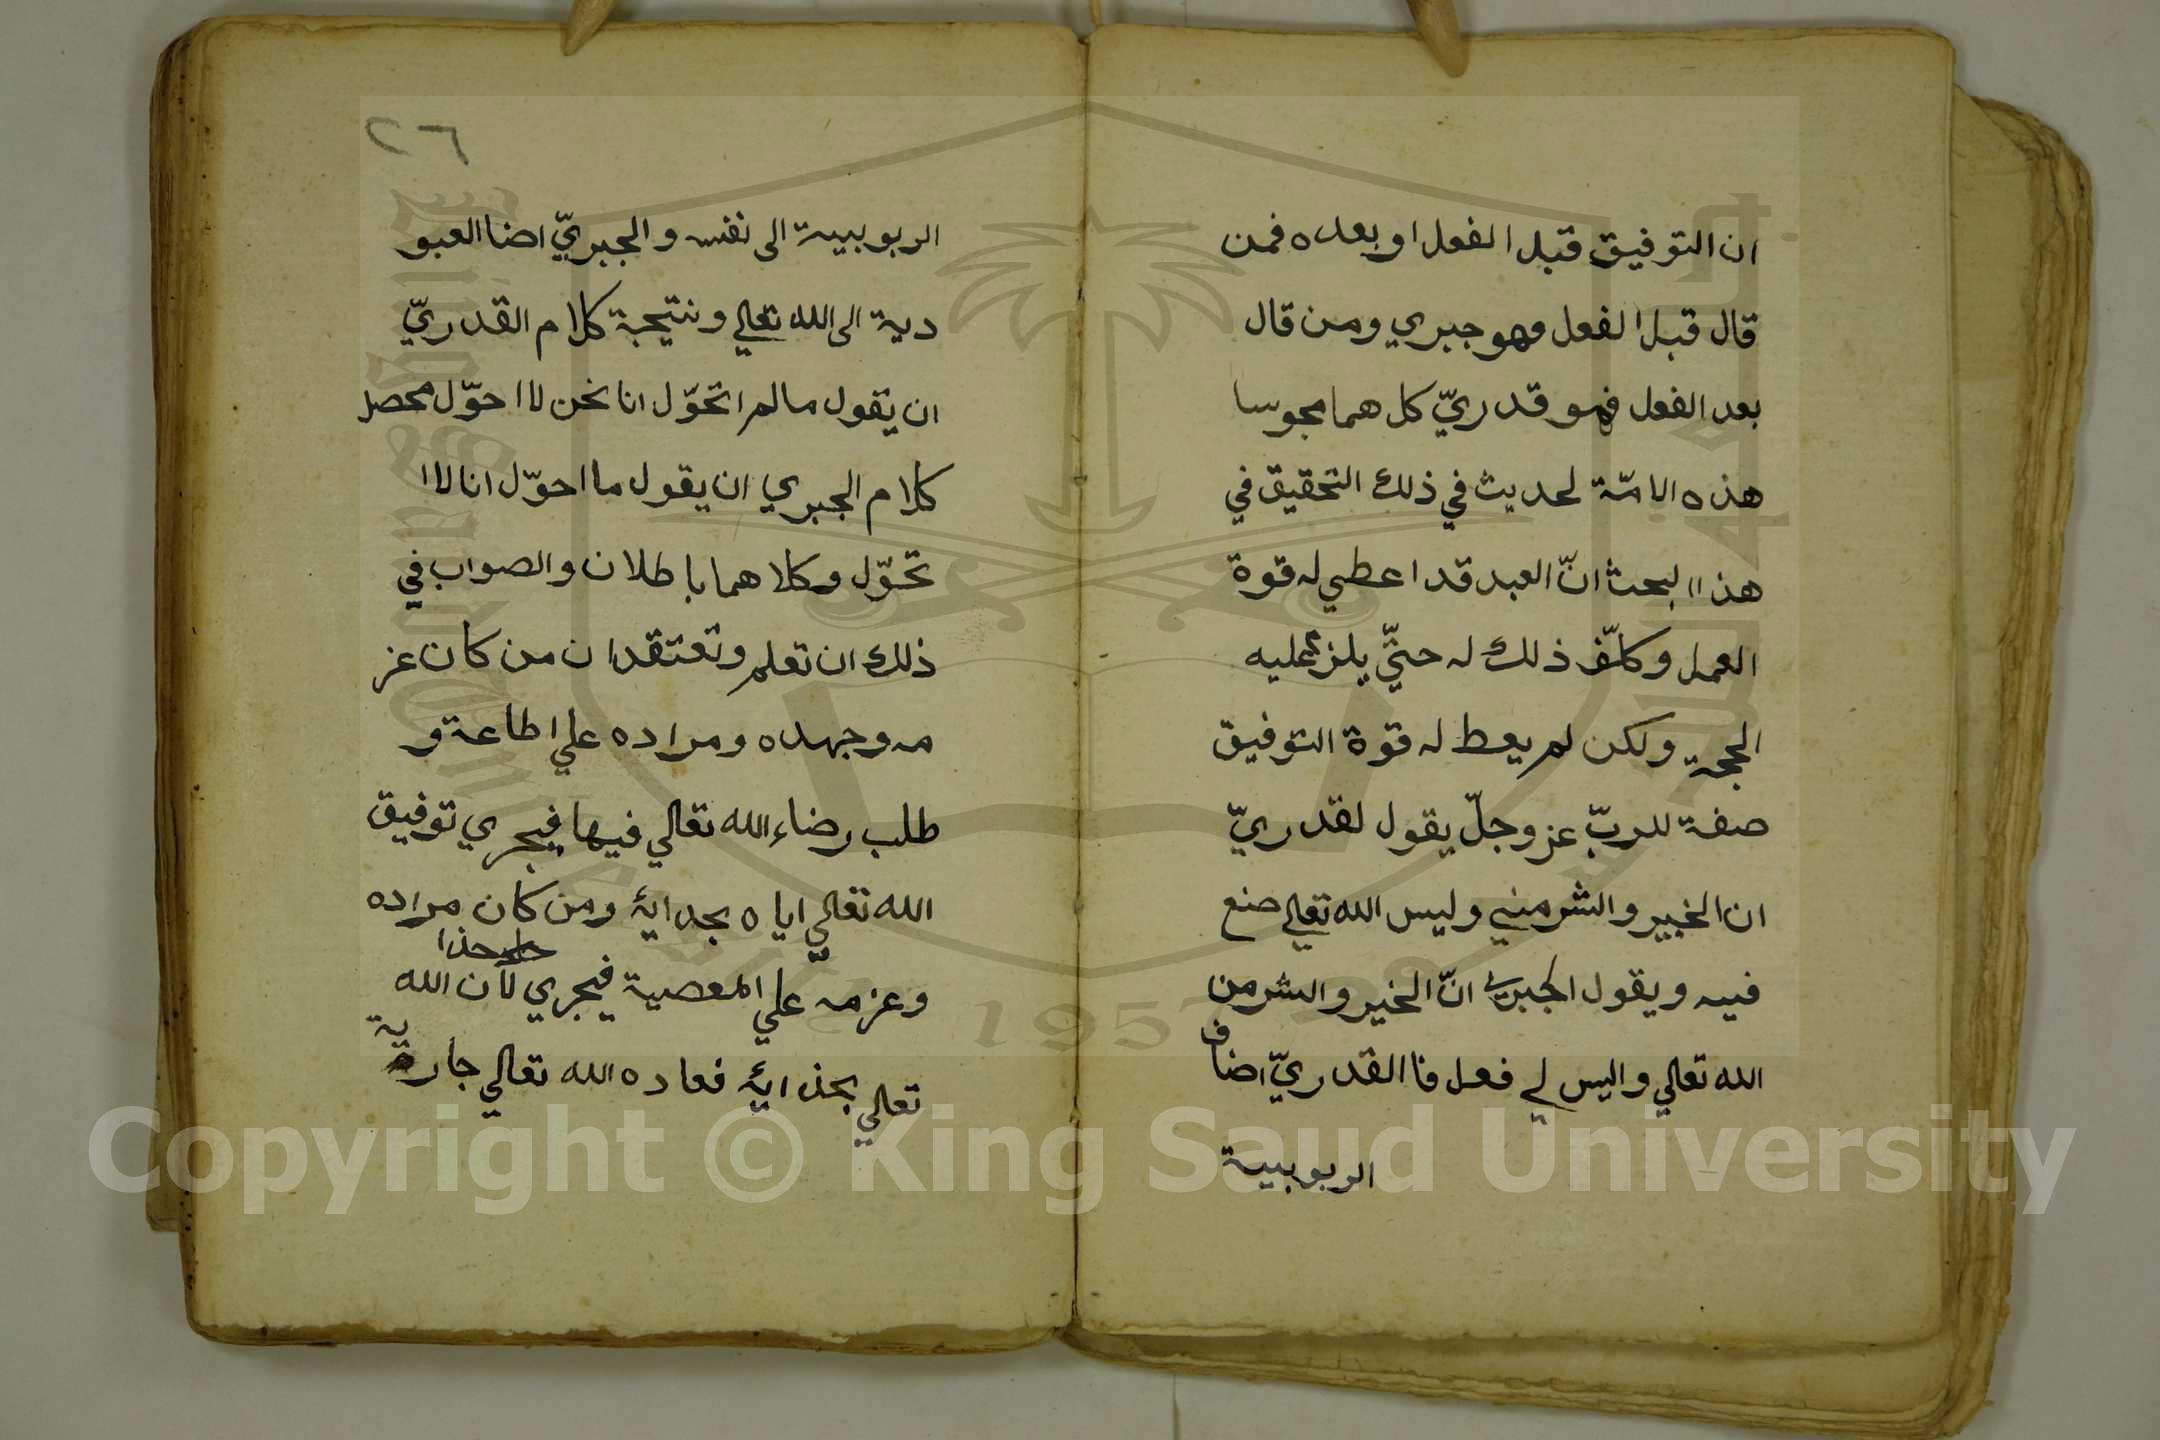 ان التوفيق قبل الفعل او بعده فمن
قال قبل الفعل فهو جبري ومن قال
بعد الفعل فهو قدريّ كل هما مجوسا
هذه الامّة لحديث في ذلك التحقيق في
هذا البحث انّ العبد قد اعطي له قوة
العمل وكلّف ذلك له حتّي يلزم عليه
الحجة ولكن لم يعط له قوة التوفيق
صفة للربّ عز وجلّ يقول لقدريّ
ان الخير والشر مني وليس الله تعالي صنع
فيه ويقول الجبري انّ الخير والشر من
الله تعالي واليس لي فعل فا القدريّ اضاف
الربوبية
٢٦
الربوبية الى نفسه والجبريّ اضا العبو
دية الى الله تعالي ونتيجة كلام القدريّ
ان يقول مالم اتحوّل انا نحن لا احوّل محصل
كلام الجبري ان يقول ما احوّل انا لا ا
تحوّل وكلا هما باطلان والصواب في
ذلك ان تعلم وتعتقد ان من كان عز
مه وجهده ومراده علي اطاعة و
طلب رضاء الله تعالي فيها فيجري توفيق
الله تعالي اياه بجدائه ومن كان مراده
وعزمه علي المعصية فيجري لان الله
تعالي بجذائه فعاده الله تعالي جارية
Copyright © King Saud University
1957